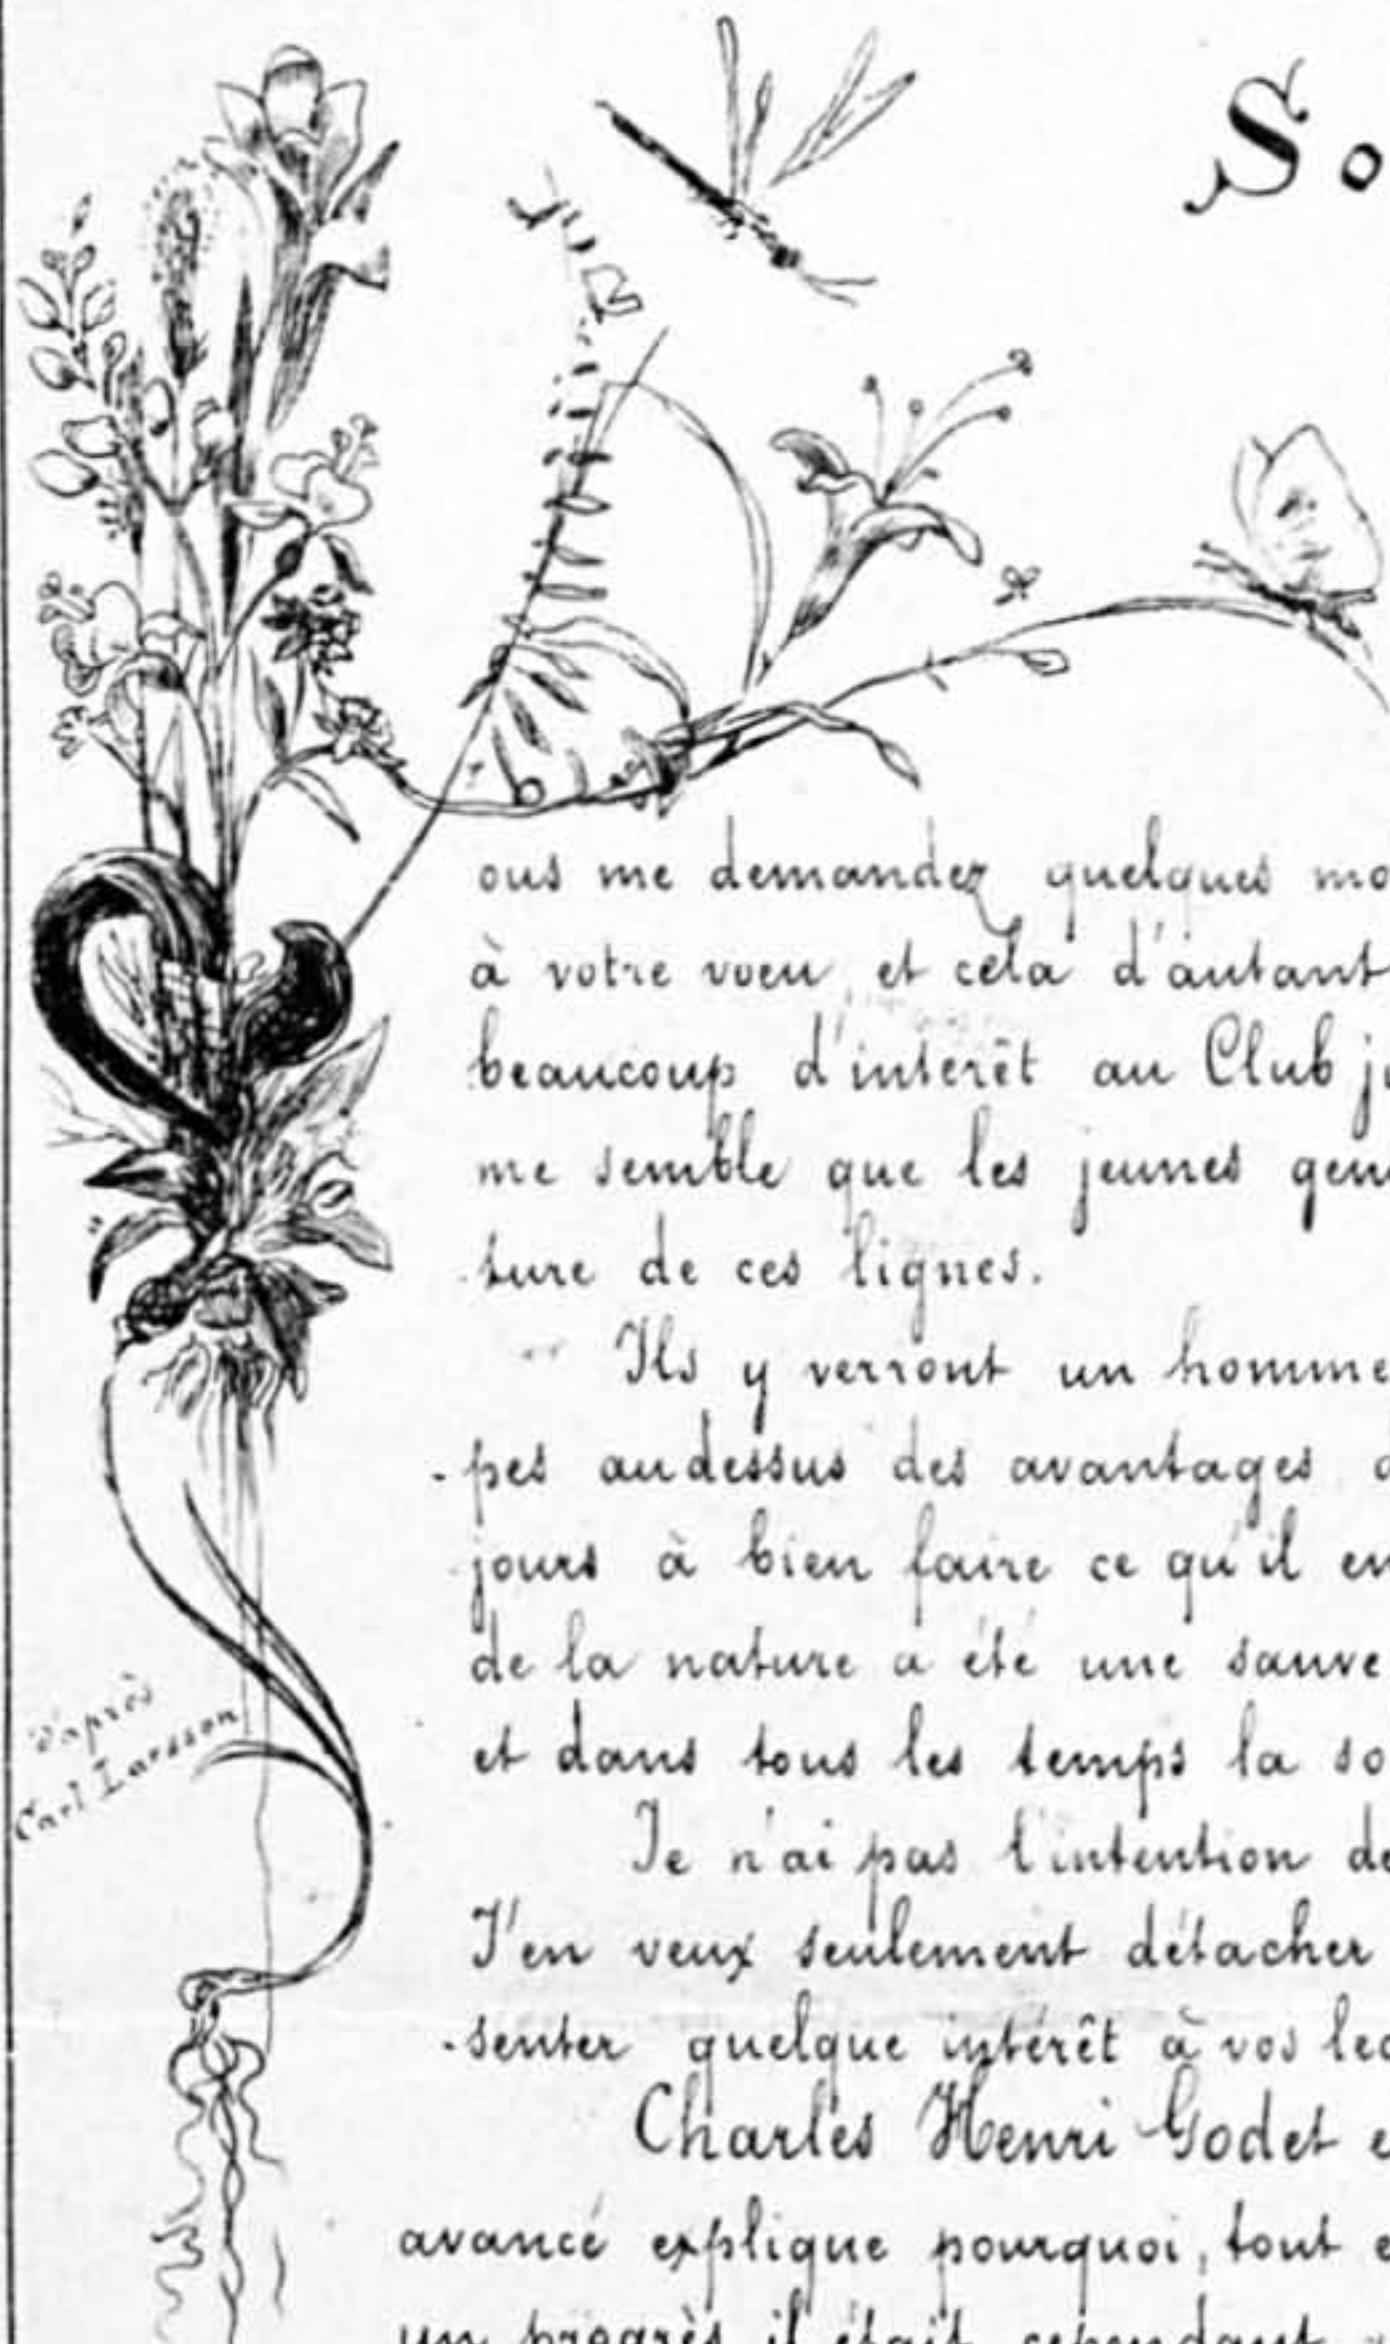 So
ous me demandez quelques mo
à votre voeu, et cela d'autant
beaucoup d'intérêt au Club ju
me semble que les jeunes gens
ture de ces lignes.
Ils y verront un homme
-pes audessus des avantages
jours à bien faire ce qu'il en
de la nature a été une sauve
et dans tous les temps la so
Je n'ai pas l'intention de
J'en veux seulement détacher
-senter quelque intérêt à vos lec
Charles Henri Godet e
avancé explique pourquoi, tout e
un progrès il était cependant
d'après
Carl Larsson